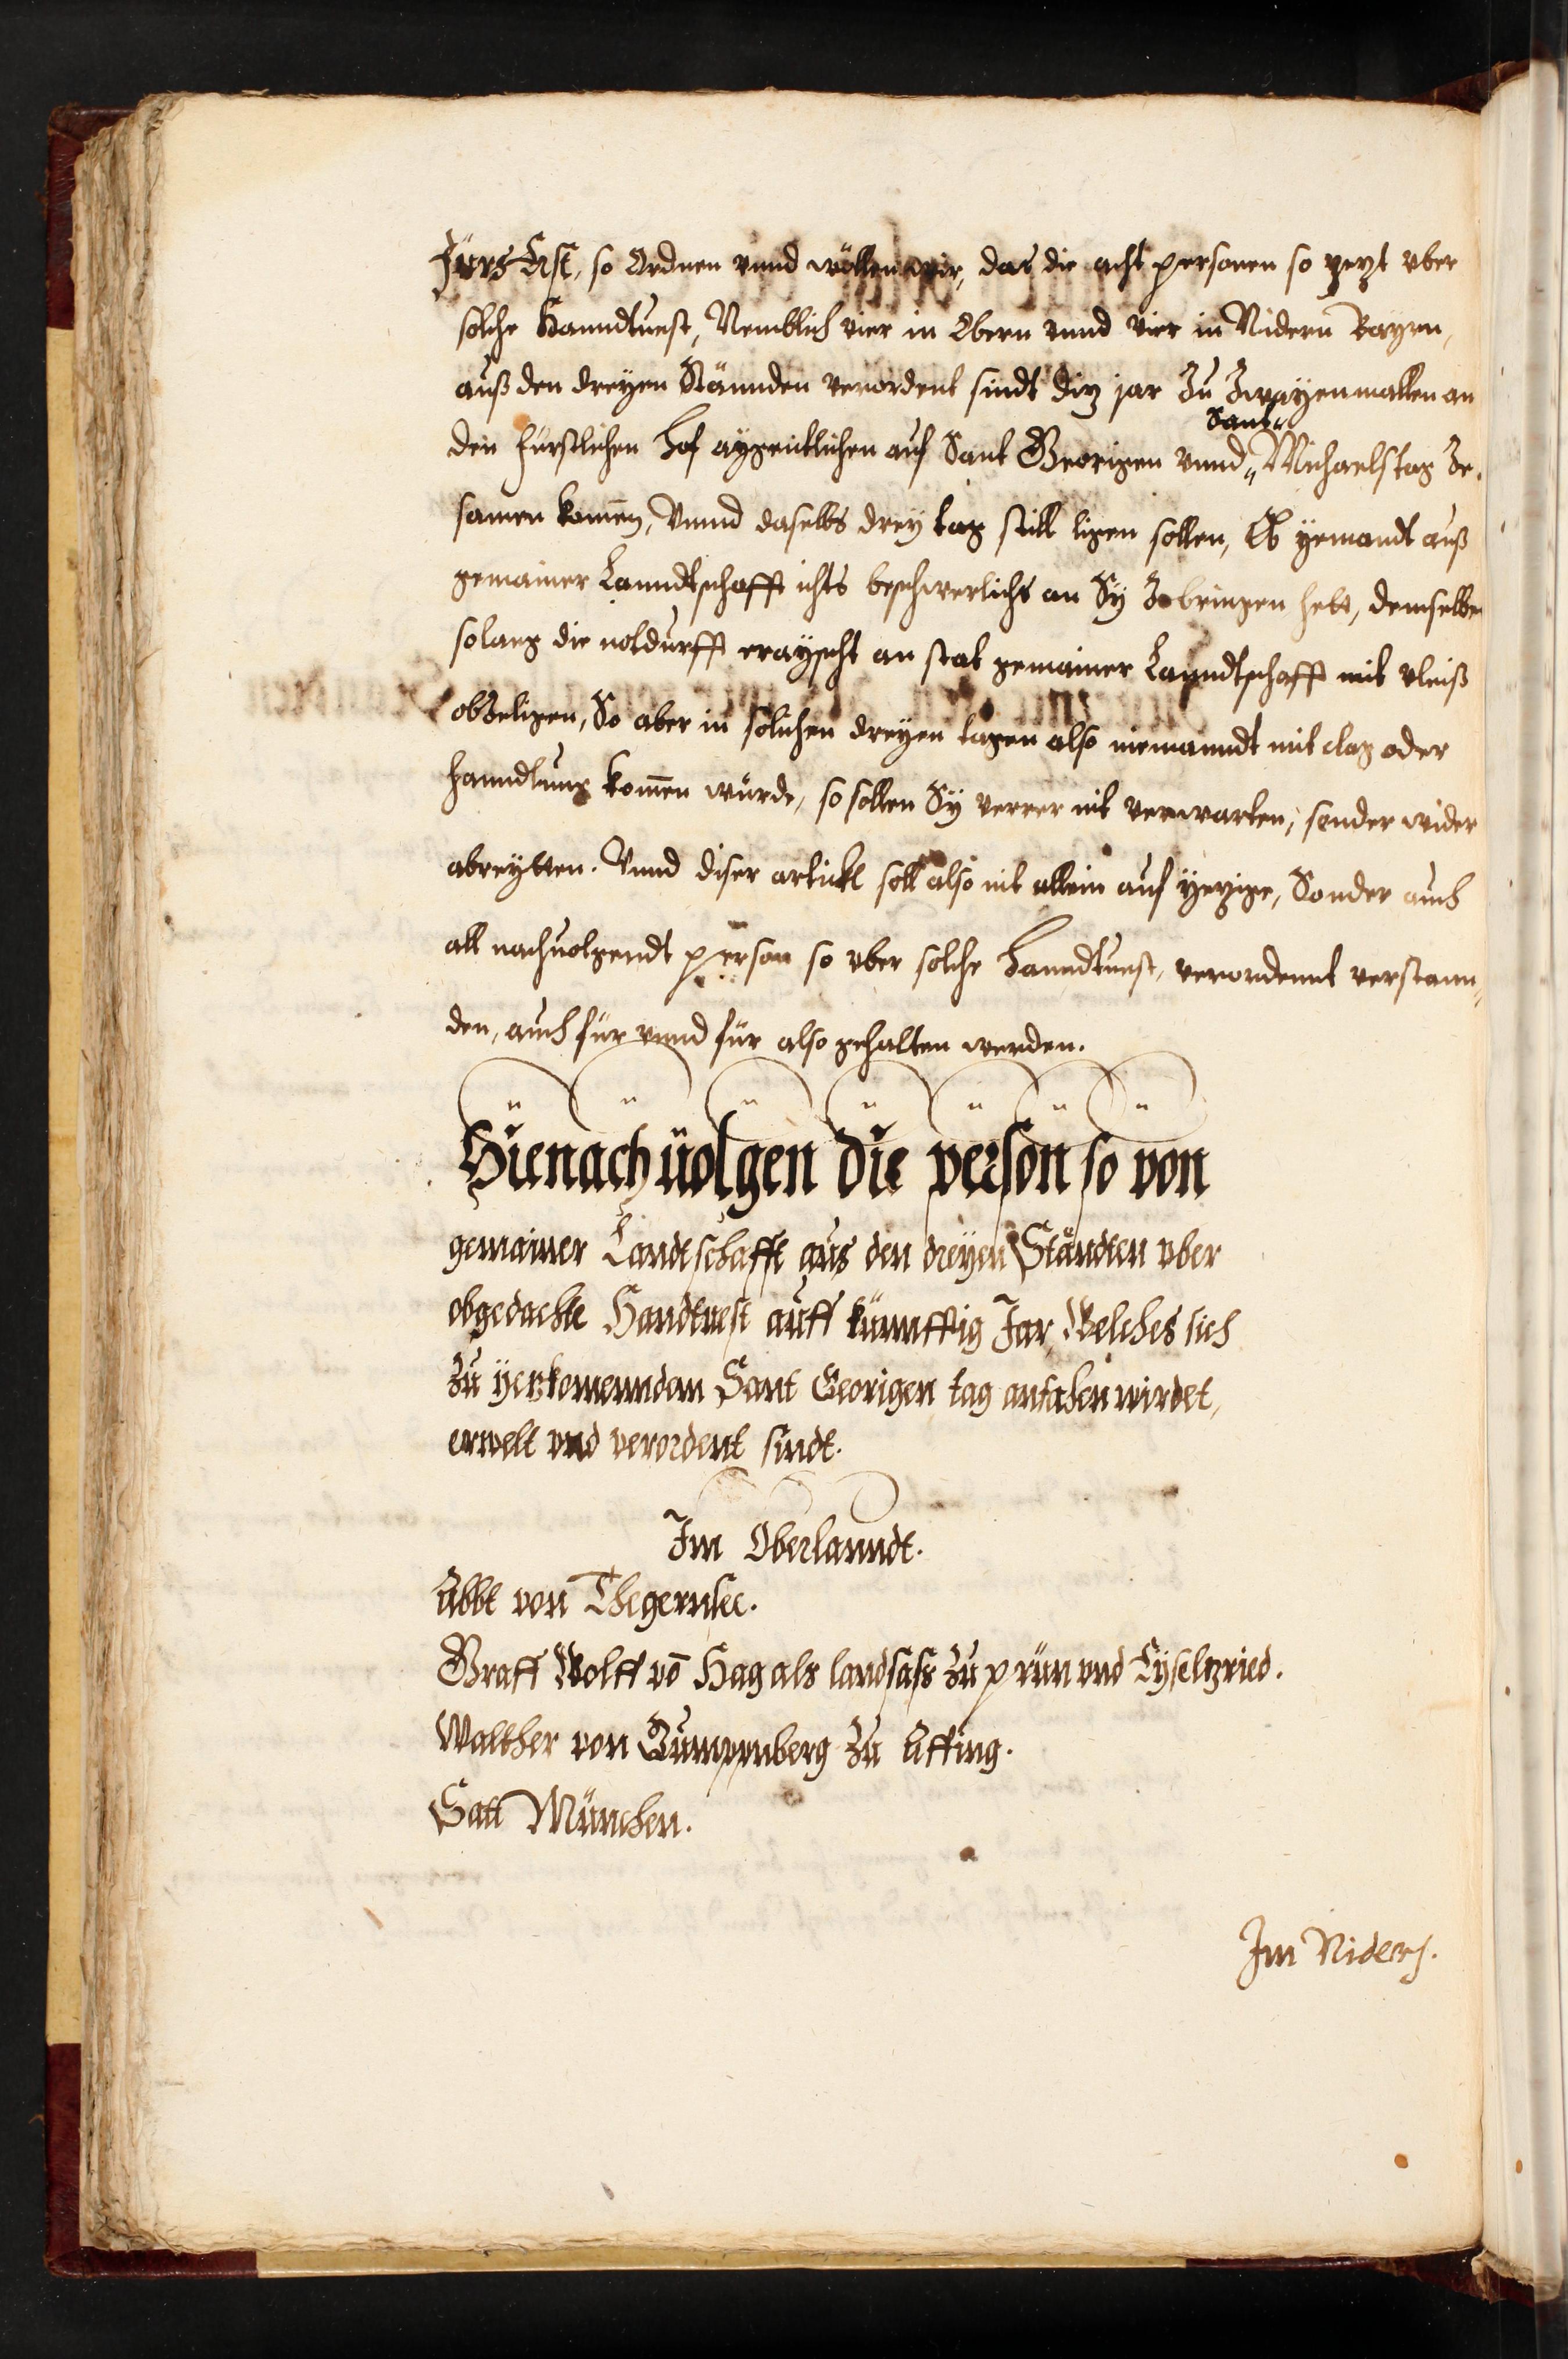 Zürs Erst, so Ordnen vnnd wöllen wir, das die acht personen so yezt vber
solche Hanndtuest, Nemblich vier in Obern vnnd vier in Nidern Bayrn,
auß den dreyen Stännden verordent sindt diz jar Zu Zwayenmallen an
den fürstlichen hof aygentlichen auf Sant Georigen vnnd Sant Michaelstag Ze-
samen komen, Vnnd daselbs drey tag still ligen sollen, Ob yemandt auß
gemainer Lanndtschafft ichts beschwerlichs an Sy Zebringen hett, demselben
solang die notdurfft eraysht an stat gemainer Lanndtschafft mit vleiß
obzeligen, So aber in solichen dreyen tagen also niemanndt mit clag oder
hanndlung komen würde, so sollen Sy verrer nit verwarten, sonder wider
abreytten. Vnnd diser artickl soll also nit allein auf yezige, Sonder auch
all nachuolgendt person so vber solche hanndtuest, verordennt verstann-
den, auch für vnnd für also gehalten werden.
Hienach üolgen die person so von
gemainer Landtschafft aus den dreyen Ständten vber
obgedachte Handtuest auff künnfftig Jar, Welches sich
zu yetzkomenndem Sant Georigen tag anfahen wirdet,
erwelt vnd verordent sindt.
Im Oberlanndt.
Abbt von Thegernsee.
Graff Wolff vō Hag als landsass zu prün vnd Eyseltzried.
Walther von Gumppnberg zu Affing.
Satt München.
Im Niders.